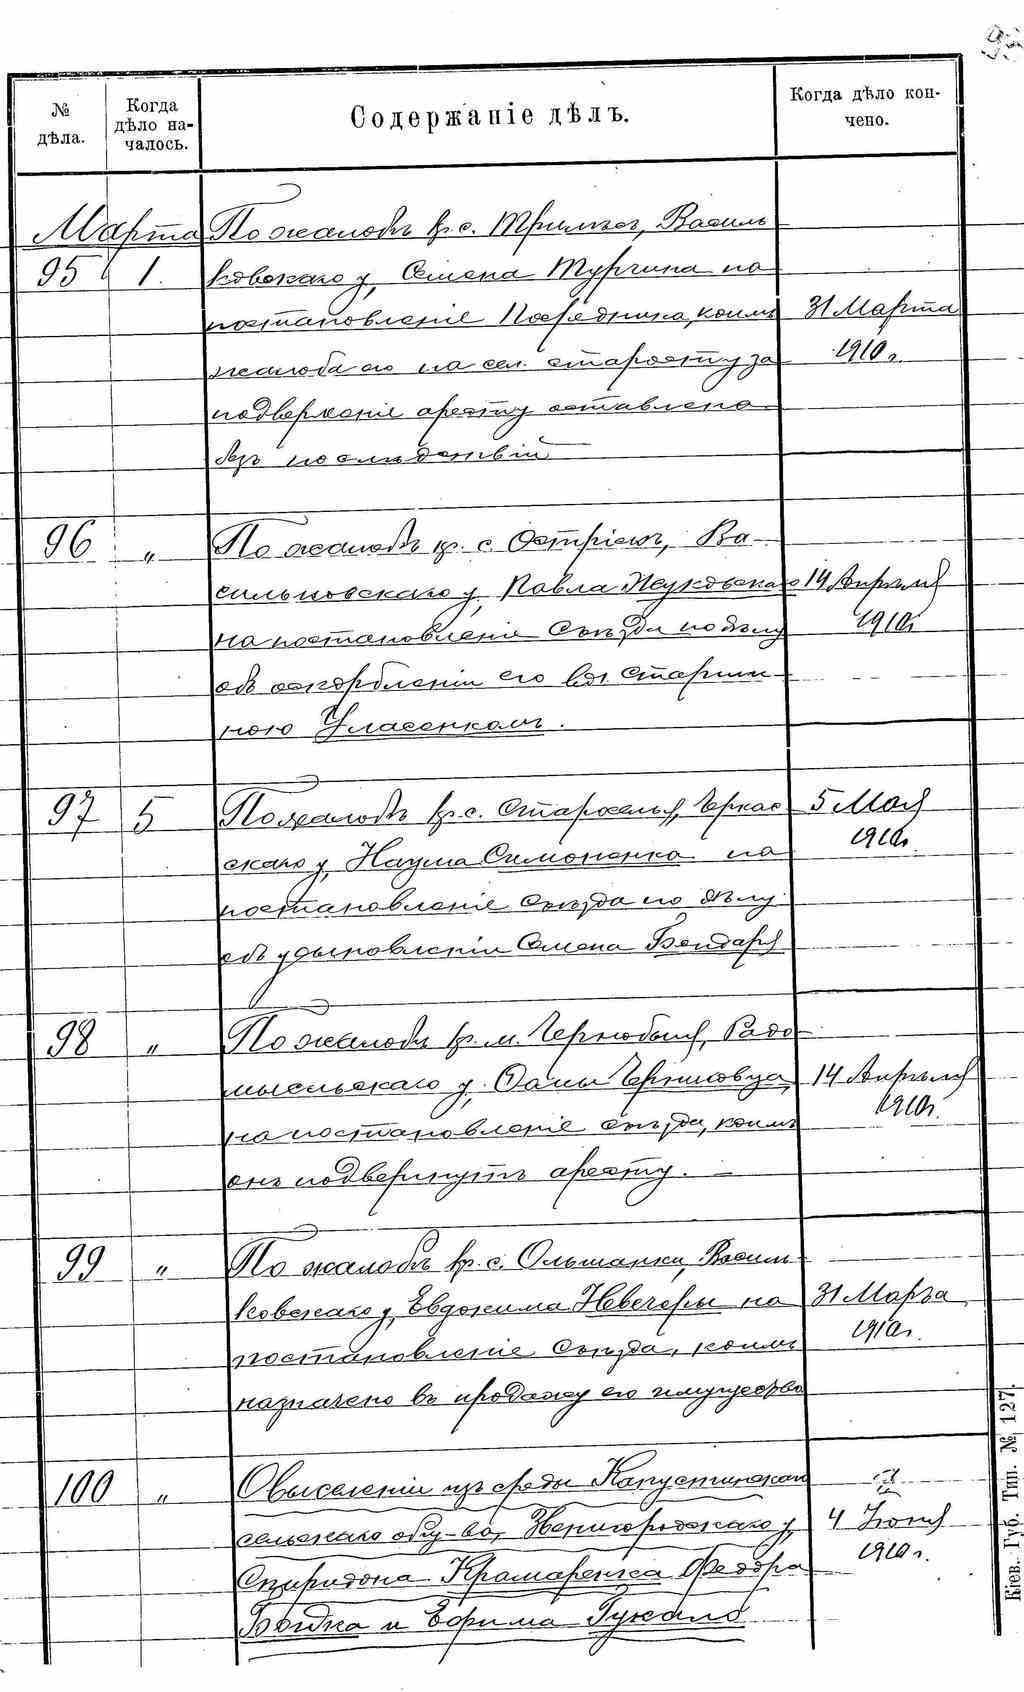 № дѣла.
Когда дѣло на-
чалось.
Содержаніе дѣлъ.
Когда дѣло кон-
чено.
Марта
95 1. По жалобѣ кр. с. Триль, Василь
ковскаго у, Семена Турчина на
постановленіе Посредника, коимъ 31 Марта
жалоба его на сел. старосту за 1910 г.
подверженіе аресту оставлена
безъ послѣдствій
96 „ По жалобѣ кр. с. Острієкъ, Ва-
сильковскаго у, Павла Жуковскаго 14 Апрѣля
на постановленіе Съѣзда по дѣлу 1910 г.
объ оскорбленіи его вол. старши-
ною Уласенкомъ.
97 5 По жалобѣ кр. с. Староселья, Черкас- 5 Мая
скаго у, Наума Симоненка на 1910 г.
постановленіе съѣзда по дѣлу
объ усыновленіи Семена Бондаря
98 „ По жалобѣ кр. м. Чернобыля, Радо-
мысльскаго у. Фомы 14 Апрѣля
на постановленіе съѣзда, коимъ 1910 г.
онъ подвергнутъ аресту.
99 „ По жалобѣ кр. с. Ольшанки, Василь-
ковскаго у, Евдокима Невечеры на 31 Марта
постановленіе съѣзда, коимъ 1910 г.
назначено въ продажу его имущество
100 „ О выселеніи изъ среды Капустинскаго
сельскаго общ-ва, Звенигородскаго у, 4 Іюня
Спиридона Крамаренка Федора 1910 г.
и Ефима Гукало
Кіев. Губ. Тип. № 127.